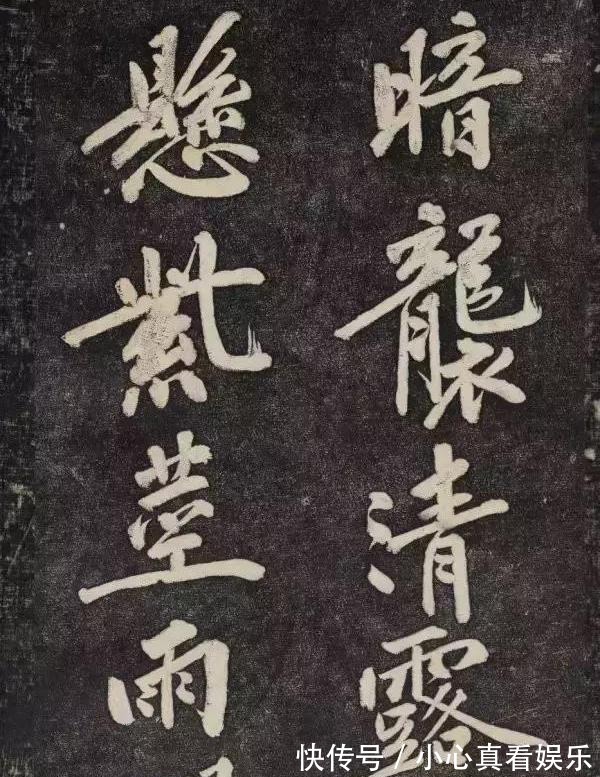 暗襲清露
懸紫莖雨
快传号 / 小心真看娱乐